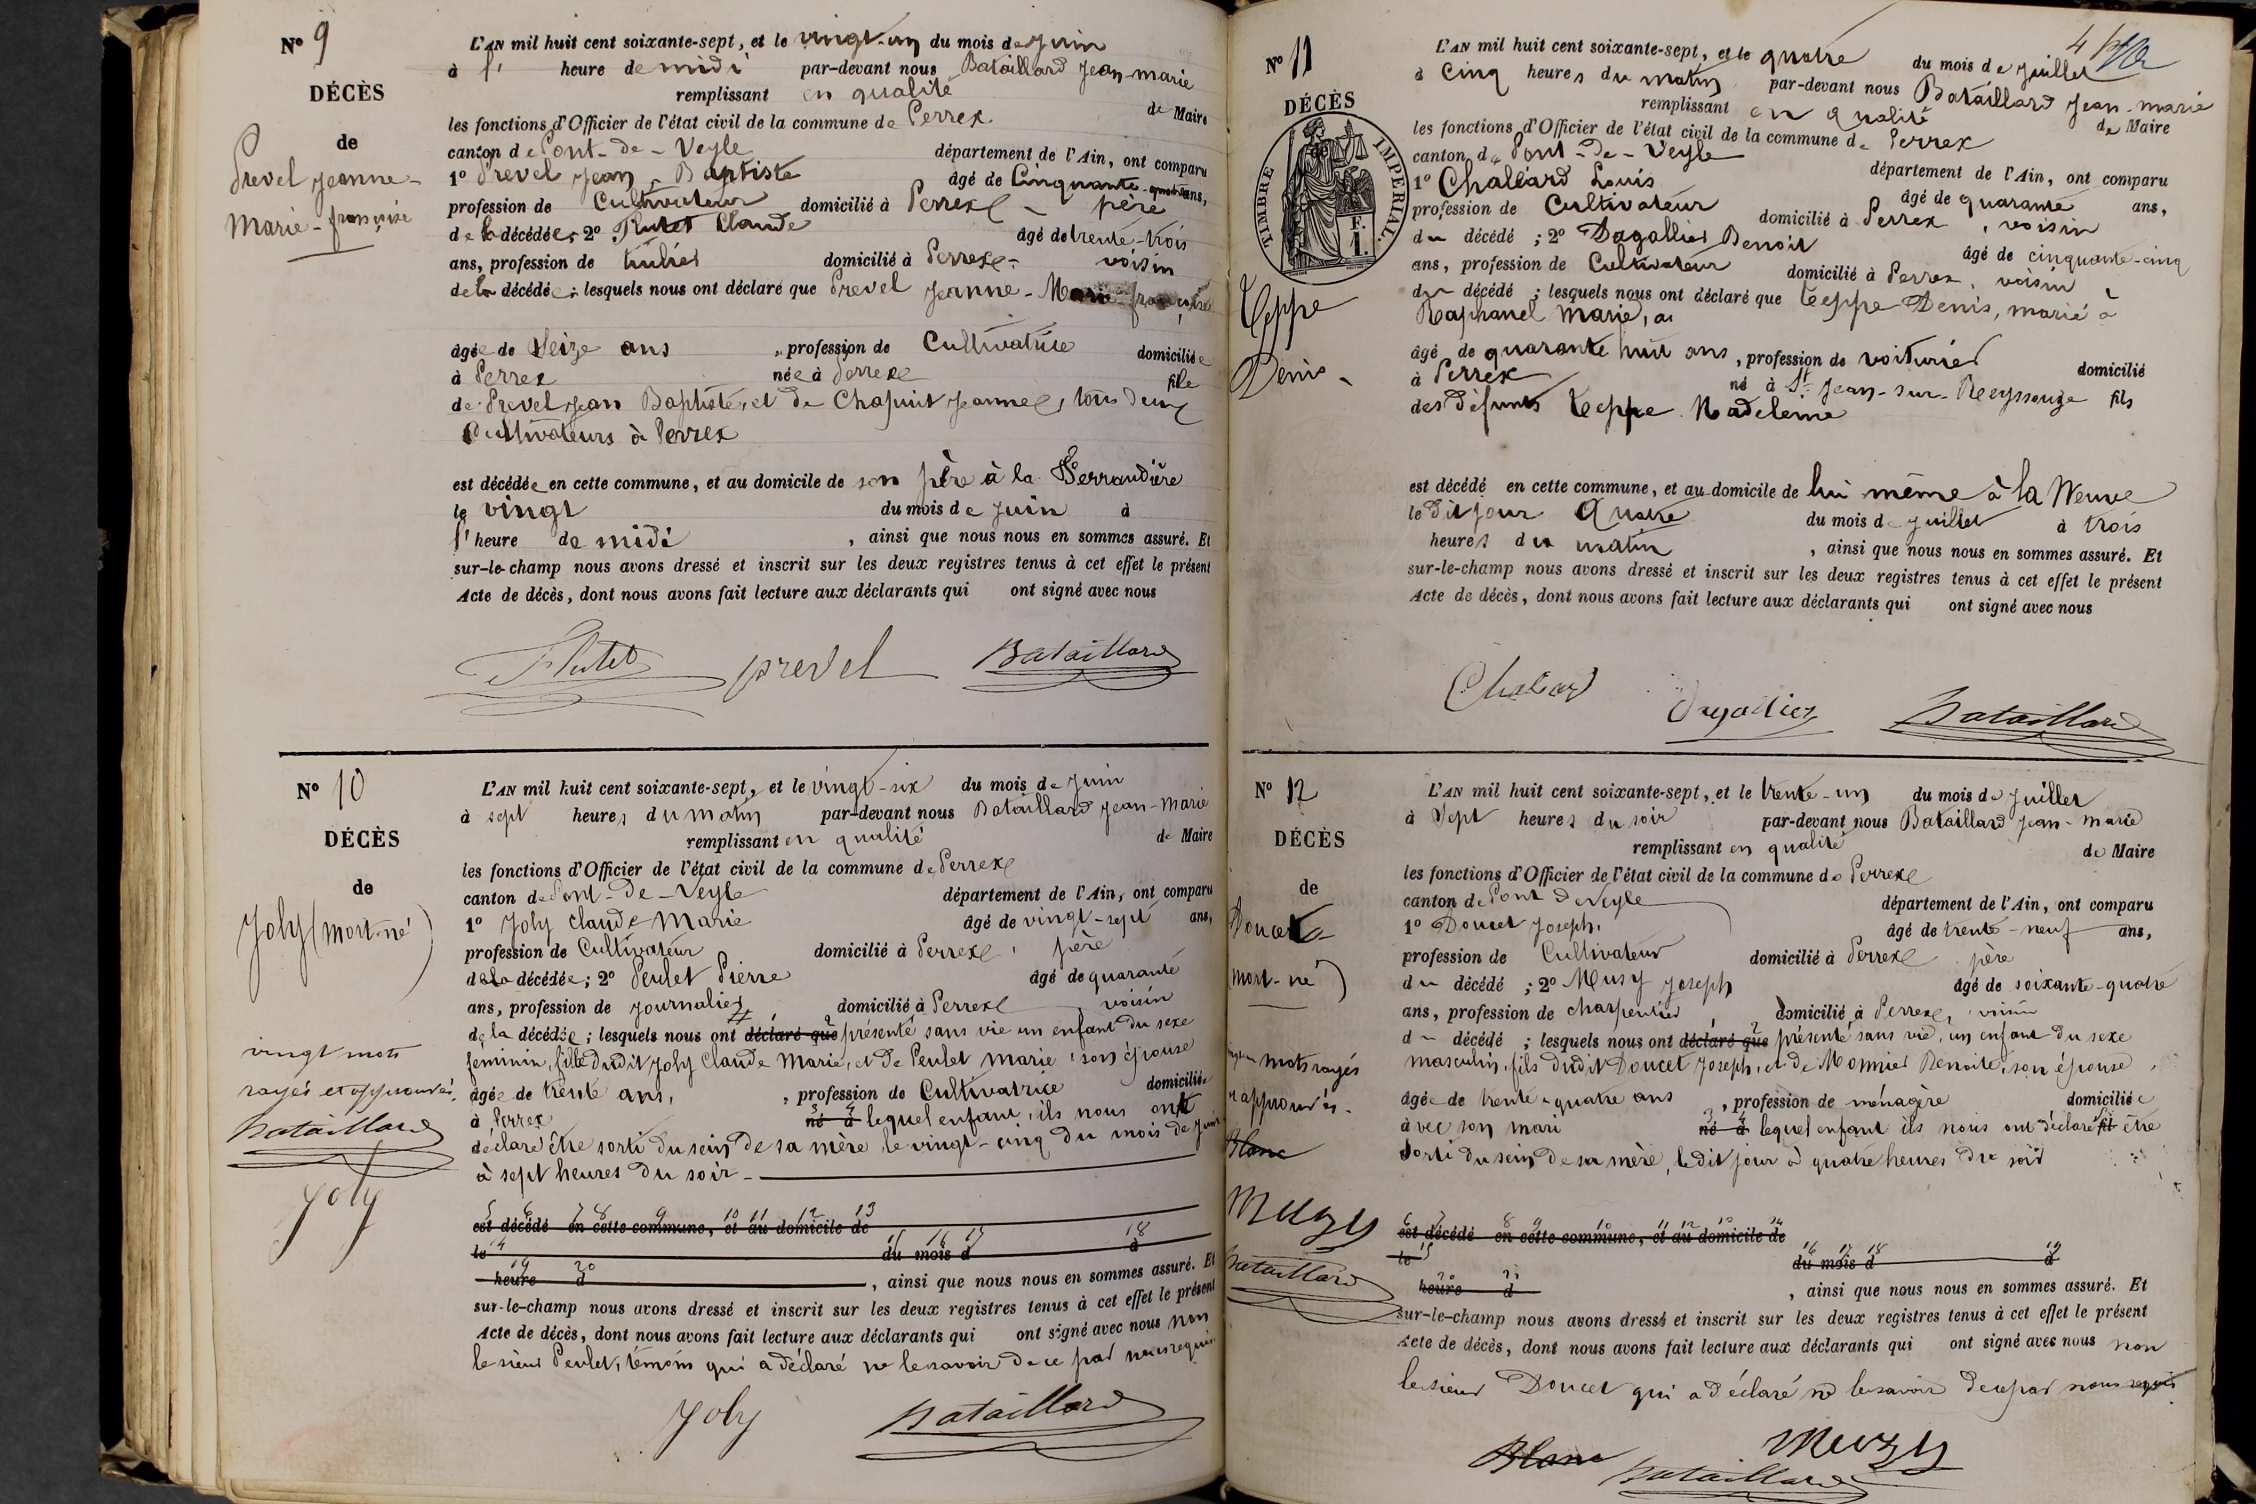 N° 9
DÉCÈS
de
Prevel Jeanne-
Marie-françoise
L'AN mil huit cent soixante-sept, et le vingt-un du mois de Juin
à l' heure de midi par-devant nous Bataillard Jean-marie
remplissant en qualité de Maire
les fonctions d'Officier de l'état civil de la commune de Perrex
canton de Pont-de-Veyle département de l'Ain, ont comparu
1° Prevel Jean-Baptiste âgé de Cinquante-quatre ans,
profession de Cultivateur domicilié à Perrex - père
de la décédée; 2° Plutet Claude âgé de trente-trois
ans, profession de tuilier domicilié à Perrex - voisin
de la décédée; lesquels nous ont déclaré que Prevel Jeanne-Marie-françoise
âgée de Seize ans, profession de Cultivatrice domiciliée
à Perrex née à Perrex fille
de Prevel Jean Baptiste, et de Chapuit Jeanne, tous deux
Cultivateurs à Perrex
est décédée en cette commune, et au domicile de son père à la Serraudière
le vingt du mois de Juin à
l'heure de midi, ainsi que nous nous en sommes assuré. Et
sur-le-champ nous avons dressé et inscrit sur les deux registres tenus à cet effet le présent
Acte de décès, dont nous avons fait lecture aux déclarants qui ont signé avec nous
Plutet prevel Bataillard
N° 10
DÉCÈS
de
Joly (mort-né)
vingt mots
rayés et approuvés.
Bataillard
Joly
L'AN mil huit cent soixante-sept, et le vingt-six du mois de Juin
à sept heures du matin par-devant nous Bataillard Jean-Marie
remplissant en qualité de Maire
les fonctions d'Officier de l'état civil de la commune de Perrex
canton de Pont-de-Veyle département de l'Ain, ont comparu
1° Joly Claude Marie âgé de vingt-sept ans,
profession de Cultivateur domicilié à Perrex, père
de la décédée; 2° Peulet Pierre âgé de quarante
ans, profession de journalier domicilié à Perrex voisin
1 2
de la décédée; lesquels nous ont déclaré que présenté sans vie un enfant du sexe
feminin, fille dudit Joly Claude Marie, et de Peulet Marie, son épouse
âgée de trente ans, profession de Cultivatrice domiciliée
3 4
à Perrex né à lequel enfant, ils nous ont
déclaré être sorti du sein de sa mère le vingt-cinq du mois de juin
à sept heures du soir -
5 6 7 8 9 10 11 12 13
est décédé en cette commune, et au domicile de
14 15 16 17 18
le du mois d à
19 20
heure d, ainsi que nous nous en sommes assuré. Et
sur-le-champ nous avons dressé et inscrit sur les deux registres tenus à cet effet le présent
Acte de décès, dont nous avons fait lecture aux déclarants qui ont signé avec nous non
le sieur Peulet, témoin qui a déclaré ne le savoir de ce par nous requis
Joly Bataillard
4
N° 11
DÉCÈS
de
TIMBRE IMPERIAL
1 F.
Teppe
Denis
L'AN mil huit cent soixante-sept, et le quatre du mois de Juillet
à Cinq heures du matin par-devant nous Bataillard Jean-marie
remplissant en qualité de Maire
les fonctions d'Officier de l'état civil de la commune de Perrex
canton de Pont-de-Veyle département de l'Ain, ont comparu
1° Challard Louis âgé de quarante ans,
profession de Cultivateur domicilié à Perrex, voisin
du décédé; 2° Dagallier Benoit âgé de cinquante-cinq
ans, profession de Cultivateur domicilié à Perrex, voisin
du décédé; lesquels nous ont déclaré que Teppe Denis, marié à
Raphanel Marie,
âgé de quarante huit ans, profession de voiturier domicilié
à Perrex né à St Jean-sur-Reyssouze fils
des défunts Teppe Madeleine
est décédé en cette commune, et au domicile de lui même à la Neuve
le dit jour Quatre du mois de Juillet à trois
heures du matin, ainsi que nous nous en sommes assuré. Et
sur-le-champ nous avons dressé et inscrit sur les deux registres tenus à cet effet le présent
Acte de décès, dont nous avons fait lecture aux déclarants qui ont signé avec nous
Chalard Dagallier Bataillard
N° 12
DÉCÈS
de
Doucet
(mort-né)
mots rayés
et approuvés.
Blanc
Muzy
Bataillard
L'AN mil huit cent soixante-sept, et le trente-un du mois de Juillet
à Sept heures du soir par-devant nous Bataillard Jean-marie
remplissant en qualité de Maire
les fonctions d'Officier de l'état civil de la commune de Perrex
canton de Pont de Veyle département de l'Ain, ont comparu
1° Doucet Joseph, âgé de trente-neuf ans,
profession de Cultivateur domicilié à Perrex père
du décédé; 2° Musy Joseph âgé de soixante-quatre
ans, profession de charpentier domicilié à Perrex, voisin
1 2
du décédé; lesquels nous ont déclaré que présenté sans vie, un enfant du sexe
masculin, fils dudit Doucet Joseph, et de Monnier Benoite, son épouse,
âgée de trente-quatre ans, profession de ménagère domiciliée
3 4 5
avec son mari né à lequel enfant ils nous ont déclaré fil être
sorti du sein de sa mère, le dit jour à quatre heures du soir
6 7 8 9 10 11 12 13 14
est décédé en cette commune, et au domicile de
15 16 17 18 19
le du mois d à
20 21
heure d, ainsi que nous nous en sommes assuré. Et
sur-le-champ nous avons dressé et inscrit sur les deux registres tenus à cet effet le présent
Acte de décès, dont nous avons fait lecture aux déclarants qui ont signé avec nous non
le sieur Doucet qui a déclaré ne le savoir de ce par nous requis
Blanc Muzy
Bataillard